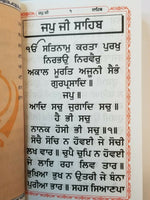 ਜਪੁ ਜੀ ਸਾਹਿਬ
ੴ ਸਤਿਨਾਮੁ ਕਰਤਾ ਪੁਰਖੁ
ਨਿਰਭਉ ਨਿਰਵੈਰੁ
ਅਕਾਲ ਮੂਰਤਿ ਅਜੂਨੀ ਸੈਭੰ
ਗੁਰਪ੍ਰਸਾਦਿ॥
ਜਪੁ॥
ਆਦਿ ਸਚੁ ਜੁਗਾਦਿ ਸਚੁ॥
ਹੈ ਭੀ ਸਚੁ
ਨਾਨਕ ਹੋਸੀ ਭੀ ਸਚੁ॥੧॥
ਸੋਚੈ ਸੋਚਿ ਨ ਹੋਵਈ ਜੇ ਸੋਚੀ
ਲਖ ਵਾਰ॥ ਚੁਪੈ ਚੁਪਿ ਨ ਹੋਵਈ
ਜੇ ਲਾਇ ਰਹਾ ਲਿਵ ਤਾਰ॥
ਭੁਖਿਆ ਭੁਖ ਨ ਉਤਰੀ ਜੇ ਬੰਨਾ
ਪੁਰੀਆ ਭਾਰ॥ ਸਹਸ ਸਿਆਣਪਾ